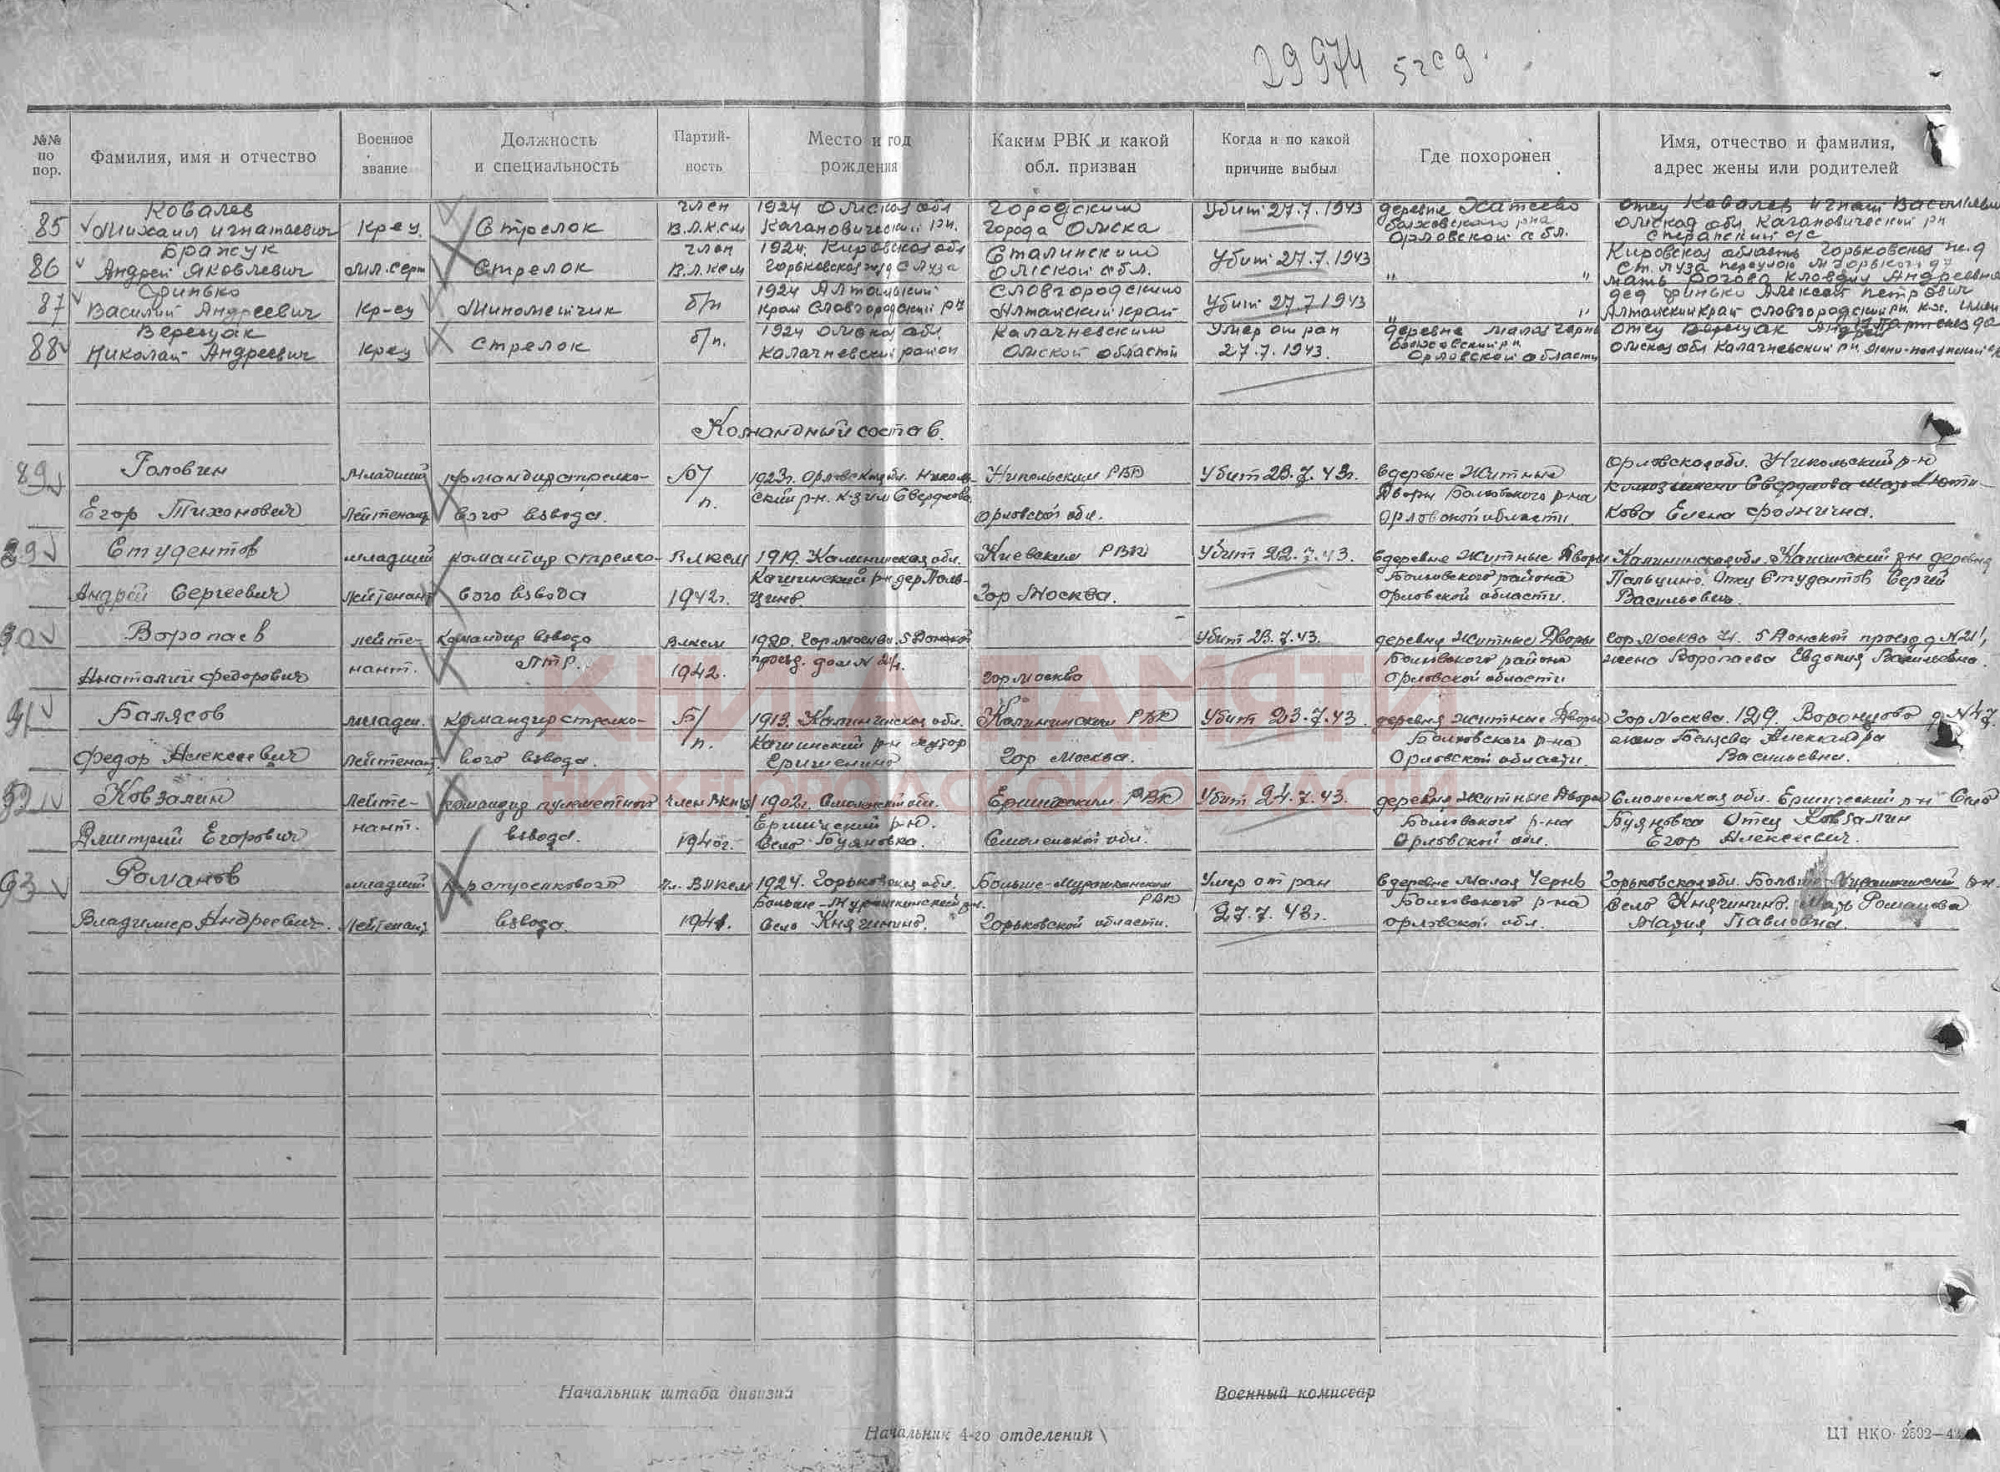 29974
№№ по пор.
Фамилия, имя и отчество
Военное звание
Должность и специальность
Партий-ность
Место и год рождения
Каким РВК и какой обл. призван
Когда и по какой причине выбыл
Где похоронен
Имя, отчество и фамилия, адрес жены или родителей
85 Ковалев Михаил Игнатьевич Кр-ец Стрелок член В.Л.К.С.М 1924 Омская обл Кагановический р-н. Городским города Омска Убит 27.7.1943 деревне Хатеево Болховского р-на Орловской обл. отец Ковалев Игнат Васильевич Омская обл. Кагановический рн с/с
86 Бражук Андрей Яковлевич Мл. серж Стрелок член В.Л.К.С.М 1924. Кировская обл Горьковская ж/д С Луза Сталинским Омской обл. Убит 27.7.1943 " " Кировская область Горьковская ж.д ст. Луза мать Рогова Клавдия Андреевна
87 Гринько Василий Андреевич Кр-ец Минометчик б/п 1924 Алтайский край Славгородский рн Славгородским Алтайский край Убит 27.7.1943 " " дед Гринько Алексей Петрович Алтайский край Славгородский рн.
88 Верещак Николай Андреевич Кр-ец Стрелок б/п. 1924 Омская обл. Калачинский район Калачинским Омской области Умер от ран 27.7.1943. деревне Малая Чернь Болховский рн Орловской области отец Верещак Омская обл Калачинский рн
Командный состав.
89 Головин Егор Тихонович Младший Лейтенант командир стрелко-вого взвода. Б/п. 1923г. Орловская обл. Николь-ский р-н. к-з им Свердлова Никольским РВК Орловской обл. Убит 23.7.43г. в деревне Житные Дворы Болховского р-на Орловской области. Орловская обл. Никольский р-н колхоз имени Свердлова Елена
Студентов Андрей Сергеевич младший Лейтенант командир стрелко-вого взвода ВЛКСМ 1942г. 1919. Калининская обл. Кашинский р-н дер Паль-цино. Киевским РВК Гор Москва. Убит 22.7.43. в деревне Житные Дворы Болховского района Орловской области. Калининская обл. Кашинский р-н деревня Пальцино. Отец Студентов Сергей Васильевич.
Воропаев Анатолий Федорович лейте-нант. Командир взвода ПТР. ВЛКСМ 1942. Гор Москва. 5 Донской проезд. дом N 21/1. Гор Москва Убит 23.7.43. деревня Житные Дворы Болховского района Орловской области Гор Москва 5 Донской проезд д N 21/1 жена Воропаева Евдокия Васильевна.
91 Балясов Федор Алексеевич младш. Лейтенант командир стрелко-вого взвода. Б/п. 1913. Калининская обл. Кашинский р-н хутор Калининским РВК Гор Москва. Убит 23.7.43. деревня Житные Дворы Болховского р-на Орловской области. Гор Москва. Воронцово Александра Васильевна.
92 Ковзалин Дмитрий Егорович Лейте-нант. командир пулеметного взвода. 1940г. 1902г. Смоленской обл. Ершичский р-н. Село Буяновка. Ершичским РВК Смоленской обл. Убит 24.7.43. деревня Житные Дворы Болховского р-на Орловской обл. Смоленская обл. Ершичский р-н Село Буяновка Отец Ковзалин Егор Алексеевич.
93 Романов Владимир Андреевич младший Лейтенант к-р стрелкового взвода чл. ВЛКСМ 1941. 1924. Горьковская обл. Больше-Мурашкинский р-н. Село Княгинино. Больше-Мурашкинским РВК Горьковской области. Умер от ран 27.7.43г. в деревне Малая Чернь Болховского р-на Орловской обл. Горьковская обл. р-н. Село Княгинино. Мать Романова Мария Павловна.
КНИГА ПАМЯТИ
НИЖЕГОРОДСКОЙ ОБЛАСТИ
Начальник штаба дивизии
Военный комиссар
Начальник 4-го отделения
ЦТ НКО 2592—42